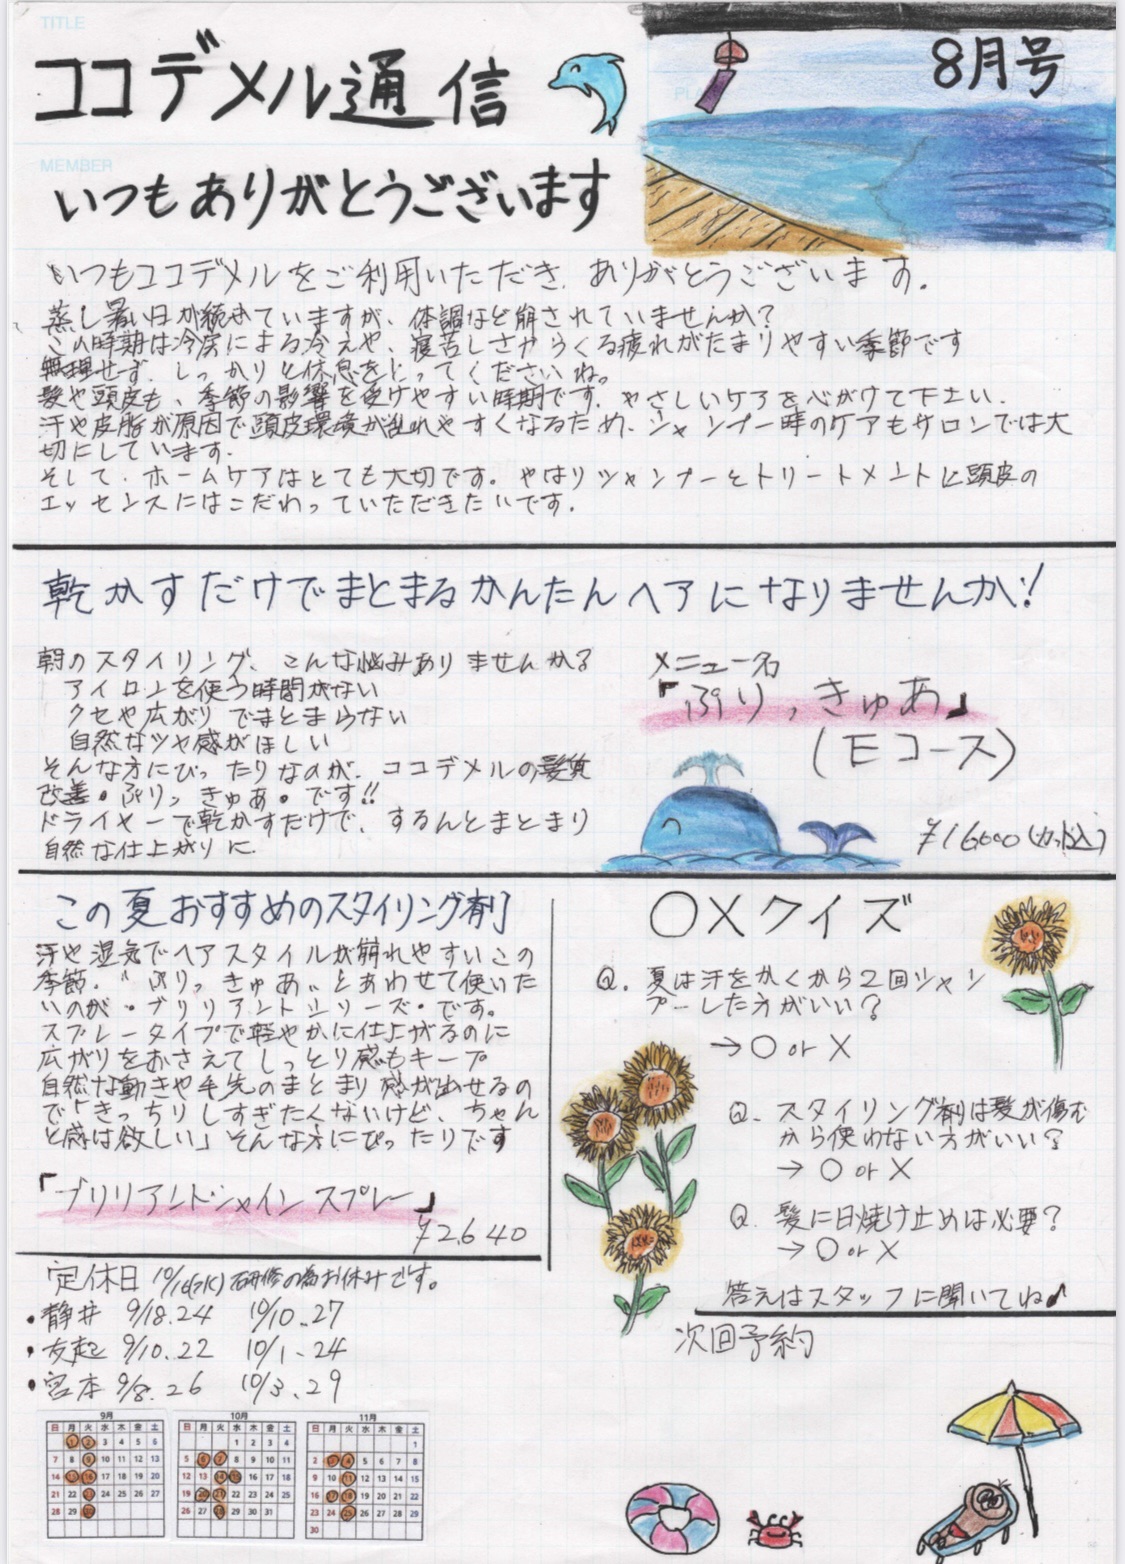 TITLE
ココデメル通信
8月号
MEMBER
いつもありがとうございます
いつもココデメルをご利用いただき、ありがとうございます。
蒸し暑い日が続きていますが、体調など崩されていませんか?
この時期は冷房による冷えや、寝苦しさからくる疲れがたまりやすい季節です
無理せず、しっかりと休息をとってくださいね。
髪や頭皮も、季節の影響を受けやすい時期です。やさしいケアを心がけて下さい.
汗や皮脂が原因で頭皮環境が乱れやすくなるため、シャンプー時のケアもサロンでは大
切にしています.
そして、ホームケアはとても大切です。やはりシャンプーとトリートメントと頭皮の
エッセンスにはこだわっていただきたいです.
乾かすだけでまとまるかんたんヘアになりませんか!
朝のスタイリング、こんな悩みありませんか?
アイロンを使う時間がない
クセや広がりでまとまらない
自然なツヤ感がほしい
そんな方にぴったりなのが、ココデメルの髪質
改善・ぷりっきゅあ・です!!
ドライヤーで乾かすだけで、するんとまとまり
自然な仕上がりに.
メニュー名
「ぷりっきゅあ」
(Eコース)
¥16000(カット込)
この夏おすすめのスタイリング剤
汗や湿気でヘアスタイルが崩れやすいこの
季節.〝ぷりっきゅあ〟とあわせて使いた
いのが・ブリリアントシリーズ・です。
スプレータイプで軽やかに仕上がるのに
広がりをおさえてしっとり感もキープ
自然な動きや毛先のまとまり感が出せるの
で「きっちりしすぎたくないけど、ちゃん
と感は欲しい」そんな方にぴったりです
「ブリリアントシャインスプレー」
¥2.640
○×クイズ
Q. 夏は汗をかくから2回シャン
プーした方がいい?
→○ or ×
Q. スタイリング剤は髪が傷む
から使わない方がいい?
→ ○ or ×
Q. 髪に日焼け止めは必要?
→○ or ×
答えはスタッフに聞いてね♪
定休日 10/15(水)研修の為お休みです。
・静井 9/18.24 10/10.27
・友起 9/10.22 10/1.24
・宮本 9/8.26 10/3.29
次回予約
9月
日 月 火 水 木 金 土
1 2 3 4 5 6
7 8 9 10 11 12 13
14 15 16 17 18 19 20
21 22 23 24 25 26 27
28 29 30
10月
日 月 火 水 木 金 土
1 2 3 4
5 6 7 8 9 10 11
12 13 14 15 16 17 18
19 20 21 22 23 24 25
26 27 28 29 30 31
11月
日 月 火 水 木 金 土
1
2 3 4 5 6 7 8
9 10 11 12 13 14 15
16 17 18 19 20 21 22
23 24 25 26 27 28 29
30